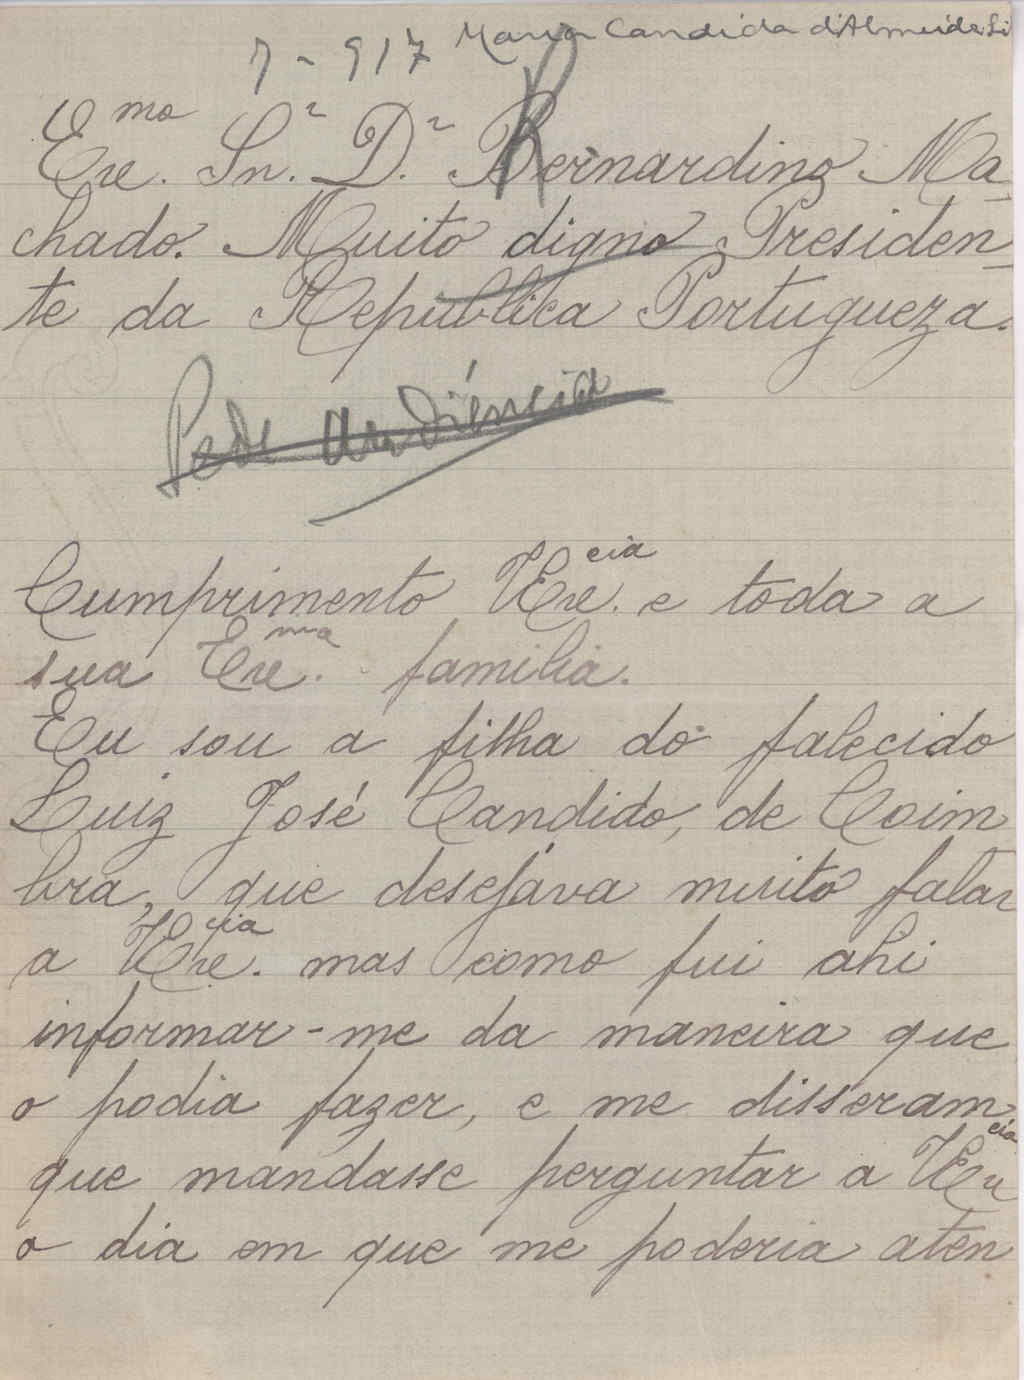 7-917 Maria Candida d'Almeida Li
Exᵐᵒ. Snʳ. Dʳ. Bernardino Ma-
chado. Muito digno Presiden-
te da Republica Portugueza.
Pede audiência
Cumprimento VExᶜⁱᵃ. e toda a
sua Exᵐᵃ. familia.
Eu sou a filha do falecido
Luiz José Candido, de Coim
bra, que desejáva muito falar
a VExᶜⁱᵃ. mas como fui ahi
informar-me da maneira que
o podia fazer, e me disseram
que mandasse perguntar a VExᶜⁱᵃ
o dia em que me poderia aten